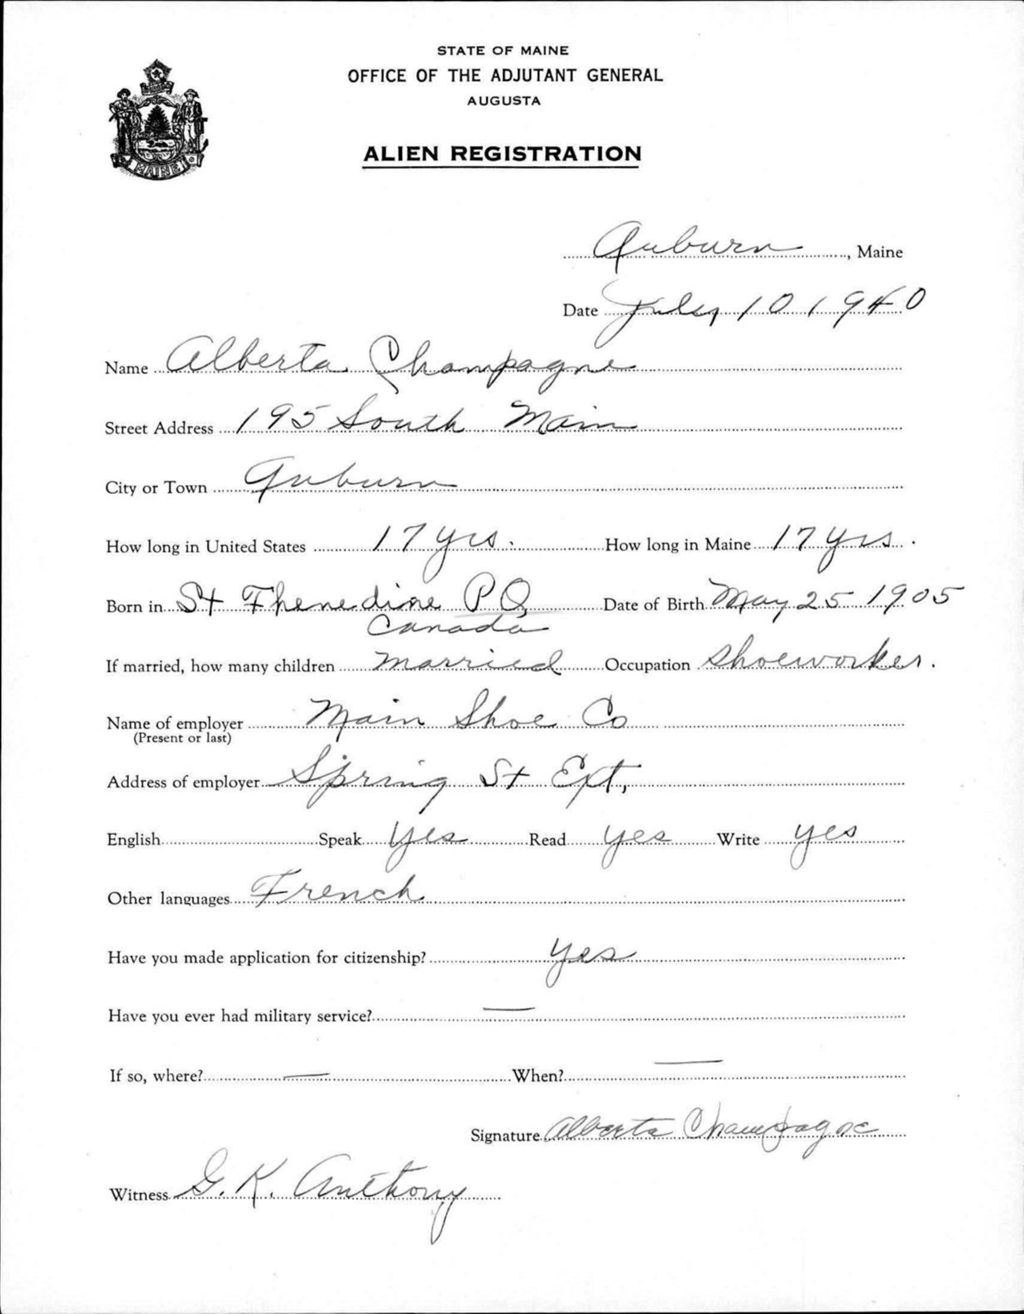 STATE OF MAINE
OFFICE OF THE ADJUTANT GENERAL
AUGUSTA
ALIEN REGISTRATION
MAINE
Auburn, Maine
Date July 10 1940
Name Alberta Champagne
Street Address 195 South Main
City or Town Auburn
How long in United States 17 yrs. How long in Maine 17 yrs.
Born in St Thenedine P Q Date of Birth May 25 1905
Canada
If married, how many children married Occupation Shoeworker.
Name of employer Main Shoe Co
(Present or last)
Address of employer Spring St Ext,
English Speak Yes Read yes Write yes
Other languages French
Have you made application for citizenship? Yes
Have you ever had military service? —
If so, where? — When? —
Signature Alberta Champagne
Witness G. K. Anthony